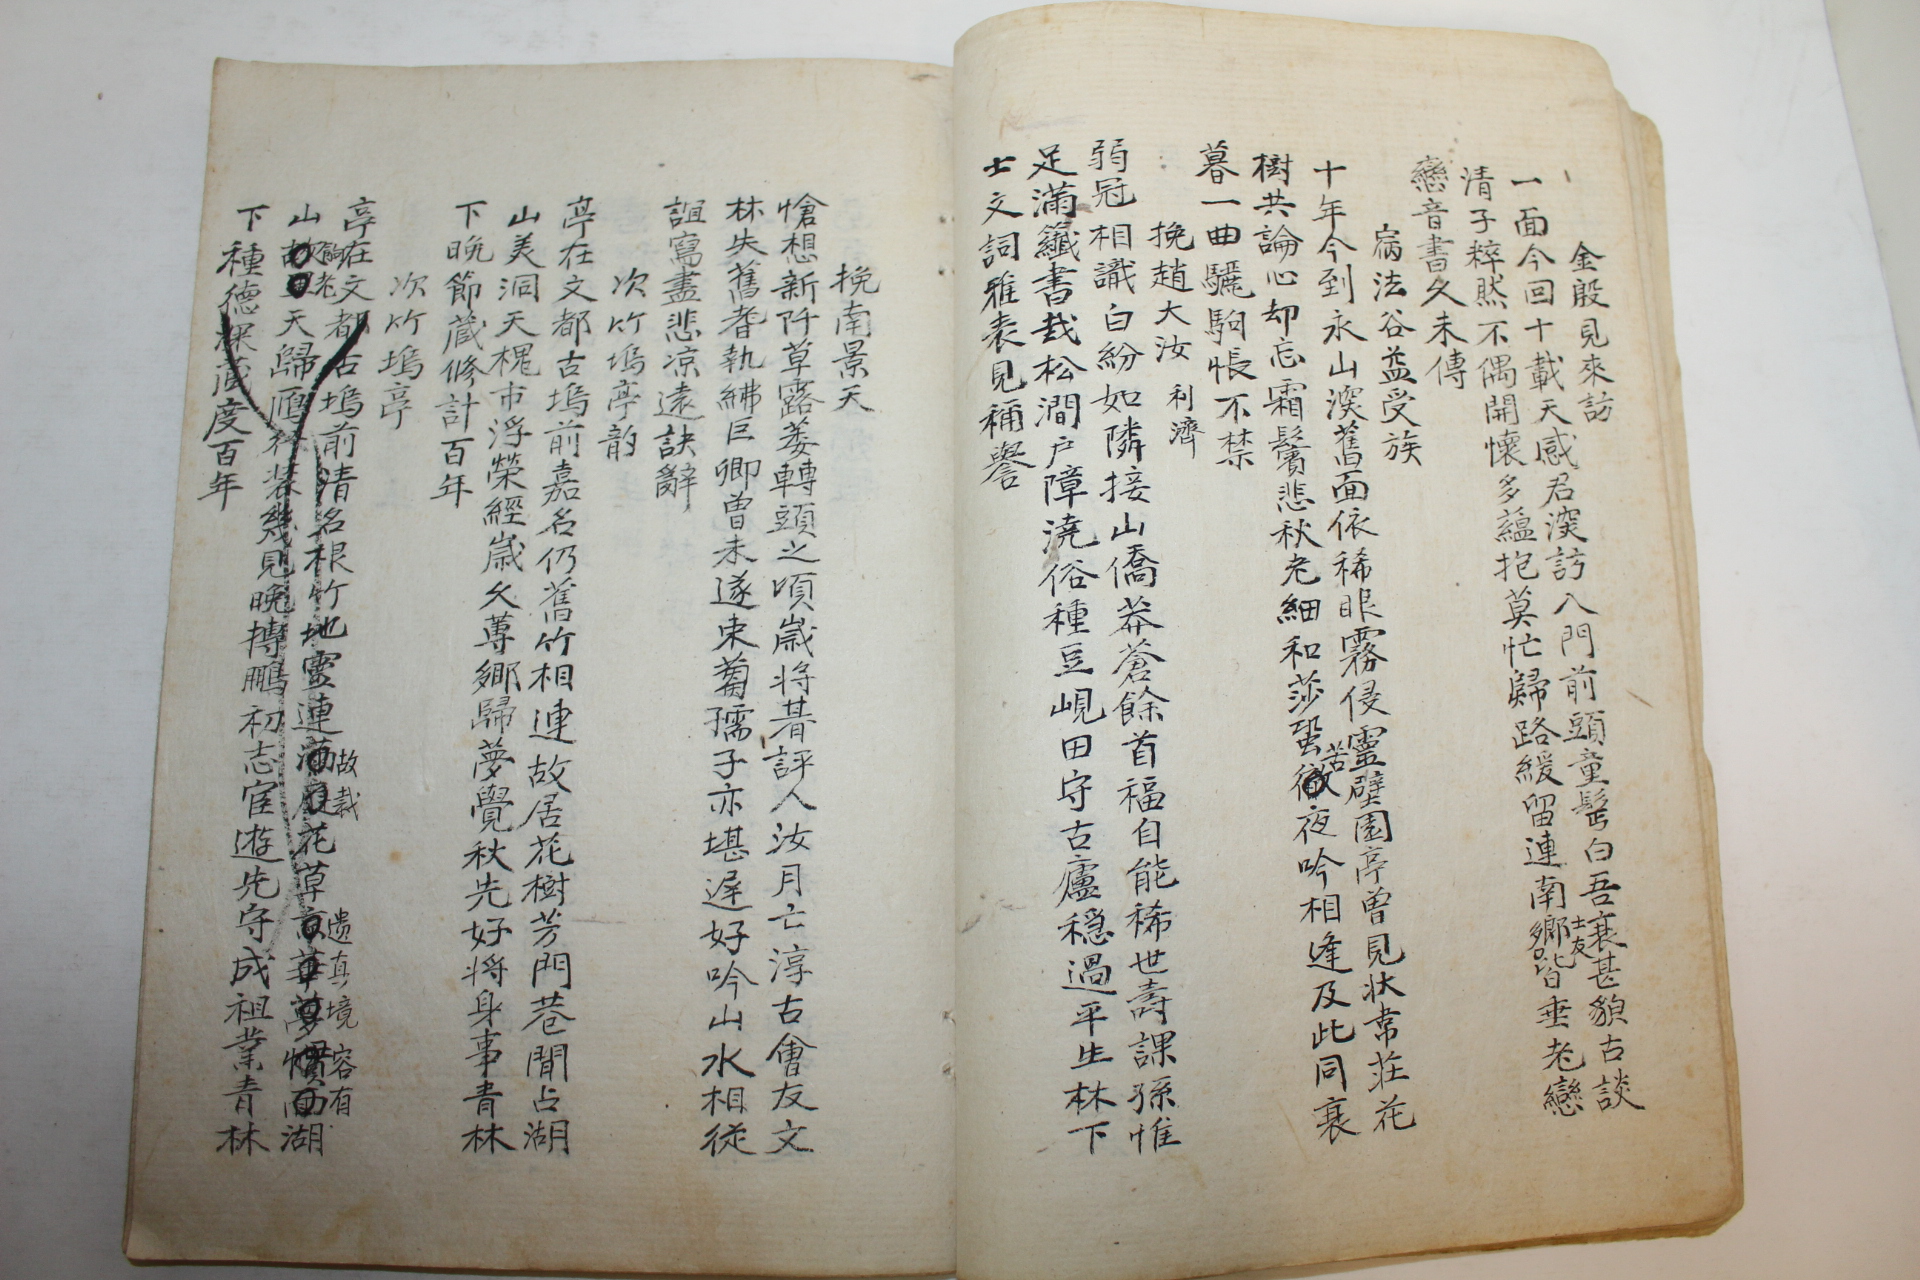 金殷見來訪
一面今回十載天感君深訪入門前頭童髩白吾衰甚貌古談
清子粹然不偶開懷多蘊抱莫忙歸路緩留連南鄉士友皆垂老戀
戀音書久未傳
病法谷益受族
十年今到永山深舊面依稀眼霧侵靈壁園亭曾見状韋莊花
樹共論心却忘霜鬢悲秋老細和莎蛩苦夜吟相逢及此同衰
暮一曲驪駒悵不禁
挽趙大汝 利濟
弱冠相識白紛如隣接山僑莽蒼餘首福自能稀世壽課孫惟
足滿籯書栽松澗戶障澆俗種豆峴田守古廬穩過平生林下
士文詞雅表見稱譽
挽南景天
愴想新阡草露萎轉頭之頃歲將朞評人汝月亡淳古會友文
林失舊耆執紼巨卿曾未遂束蒭孺子亦堪遲好吟山水相從
誼寫盡悲凉遠訣辭
次竹塢亭韵
亭在文都古塢前嘉名仍舊竹相連故居花樹芳門巷閒占湖
山美洞天槐市浮榮經歲久蓴鄉歸夢覺秋先好將身事青林
下晩節藏修計百年
次竹塢亭
亭在文都古塢前清名根竹地靈連故栽花草遺真境容有湖
山天歸幾見晩摶鵬初志宦遊先守成祖業青林
下種德深藏度百年